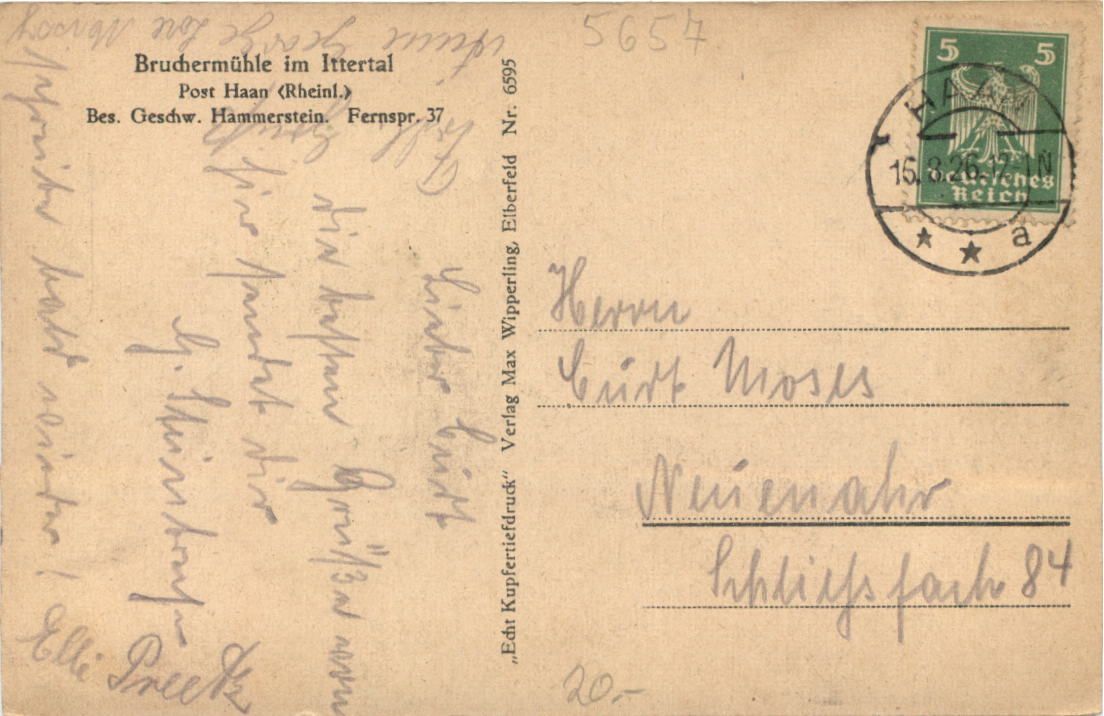 5657
Bruchermühle im Ittertal
Post Haan (Rheinl.)
Bes. Geschw. Hammerstein. Fernspr. 37
Lieber Curt
die besten Grüße von
hier sendet dir
schreibe bald wieder! Elli
„Echt Kupfertiefdruck" Verlag Max Wipperling, Elberfeld Nr. 6595
5 5
Deutsches
Reich
HAAN
16.8.26.12-1N
a
Herrn
Curt Moses
Neuenahr
Schließfach 84
20.-